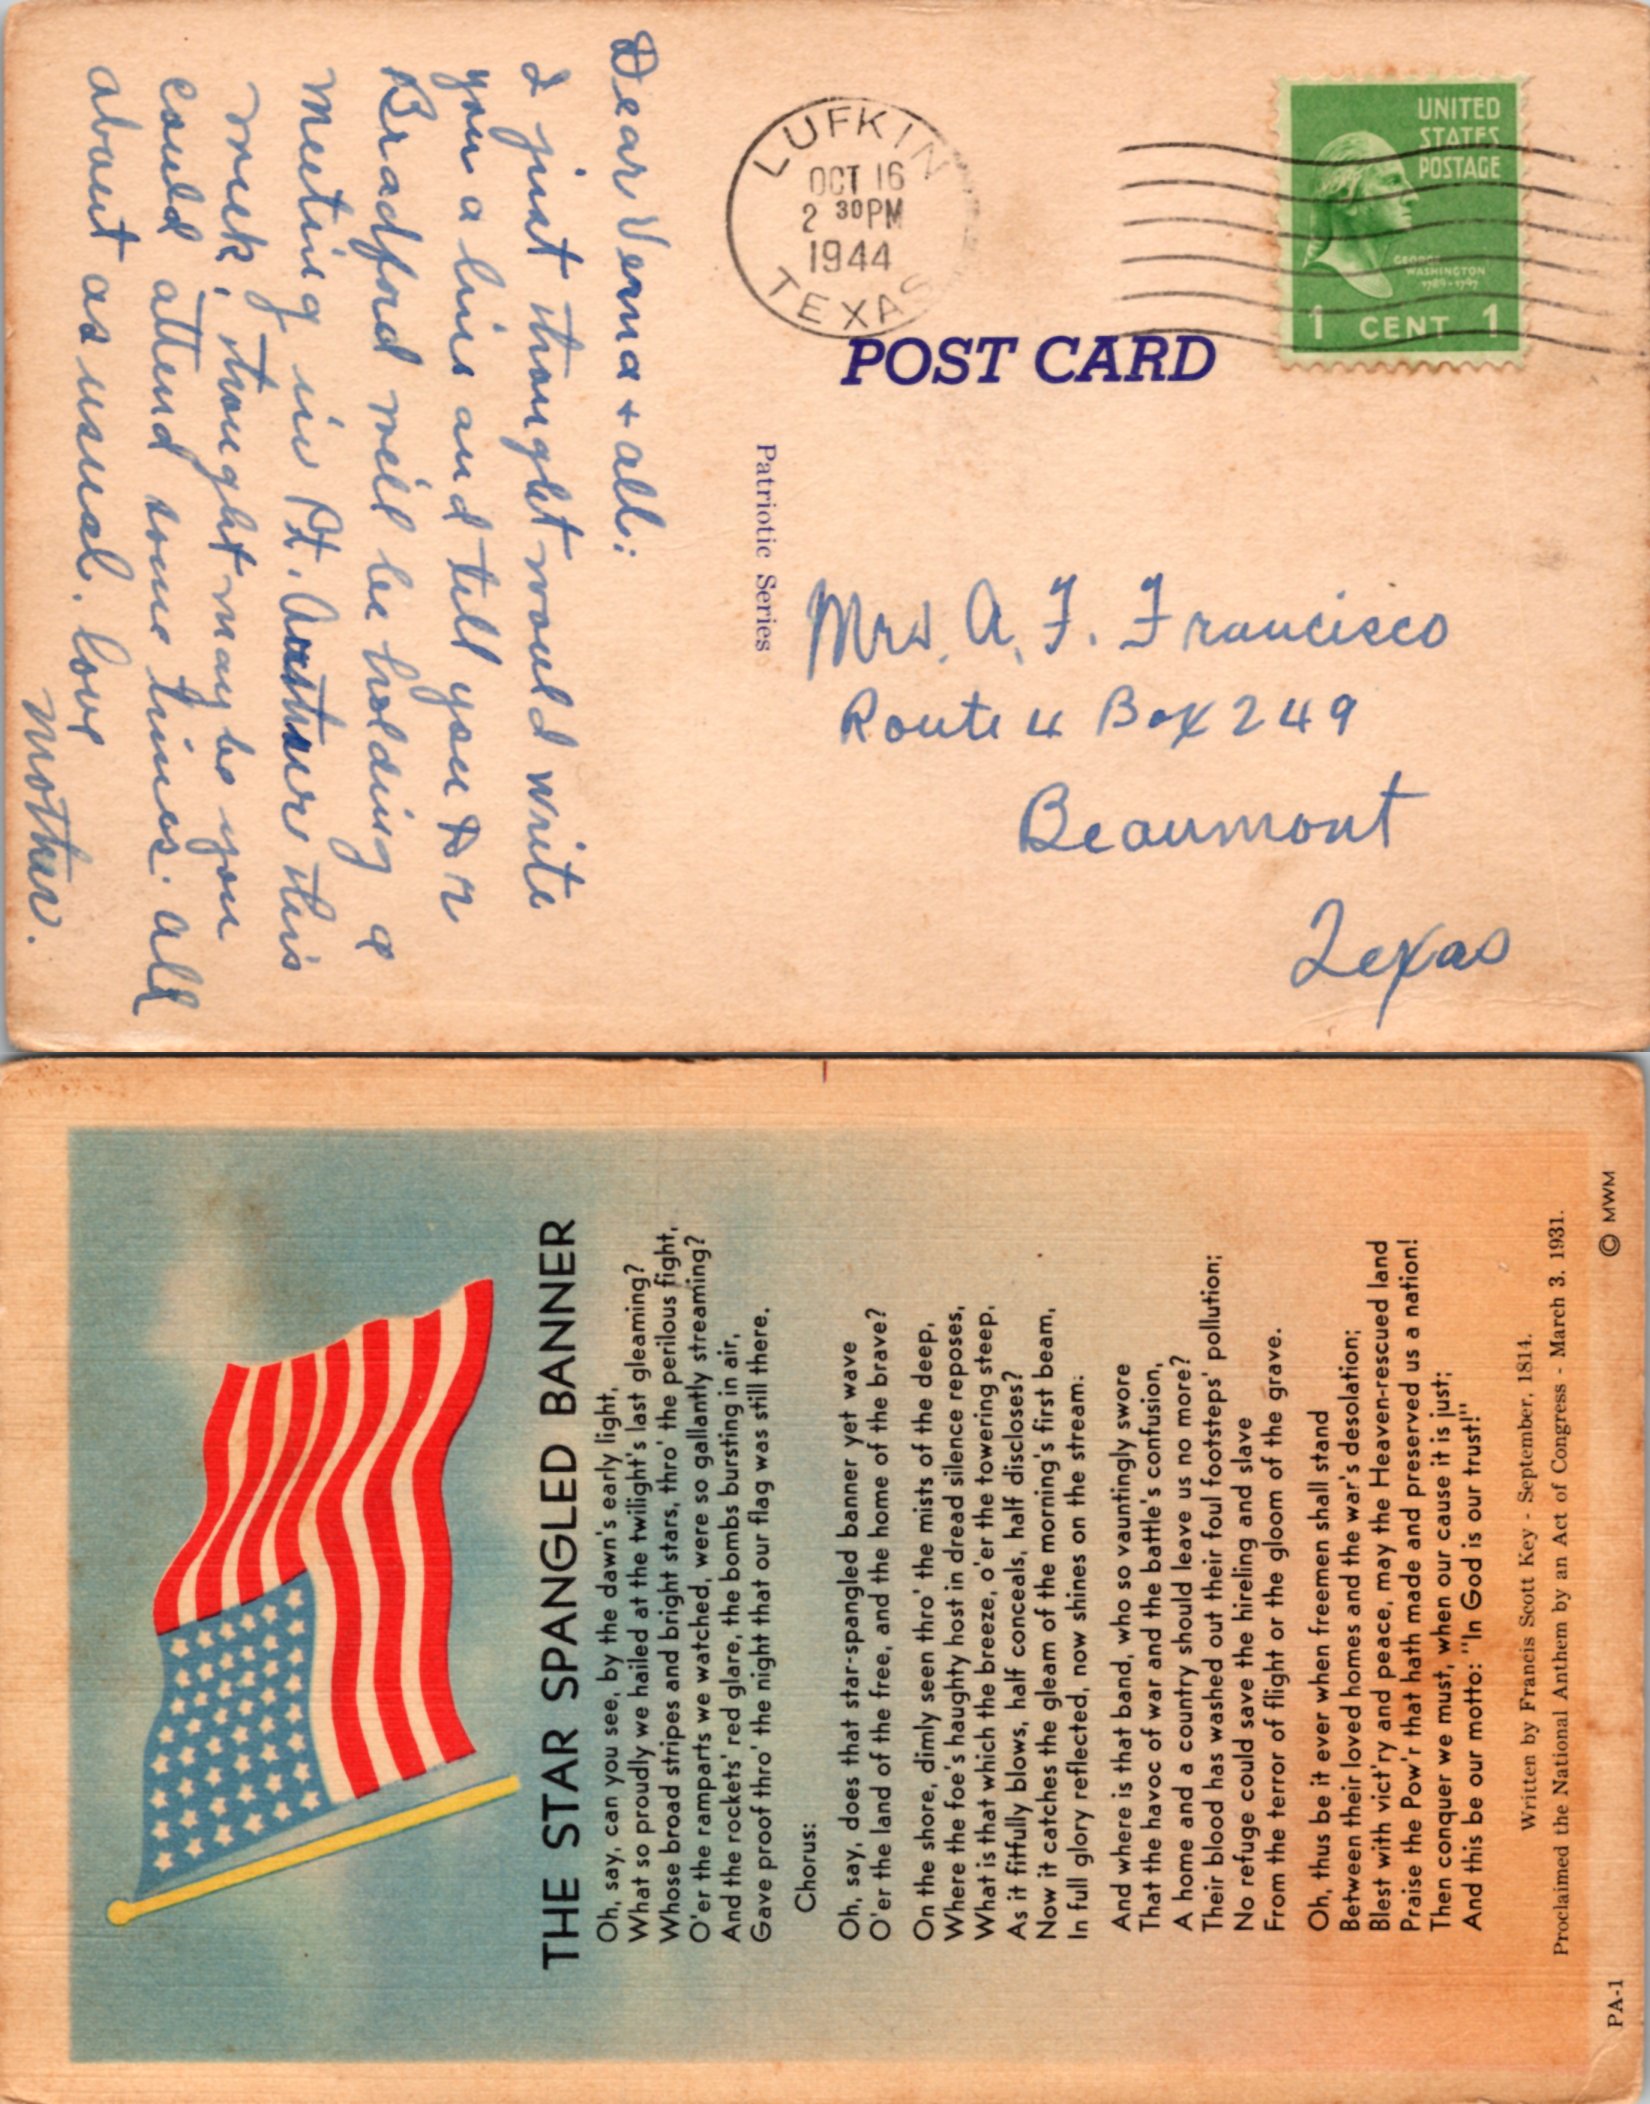 Dear Verna + all:
I just thought would write
you a line and tell you Dr
Bradford will be holding a
meeting in Pt. Arthur this
week, thought may be you
could attend some times. all
about as usual. love
Mother.
LUFKIN
OCT 16
2 30PM
1944
TEXAS
UNITED
STATES
POSTAGE
GEORGE
WASHINGTON
1789-1797
1 CENT 1
POST CARD
Patriotic Series
Mrs. A. F. Francisco
Route 4 Box 249
Beaumont
Texas
THE STAR SPANGLED BANNER
Oh, say, can you see, by the dawn's early light,
What so proudly we hailed at the twilight's last gleaming?
Whose broad stripes and bright stars, thro' the perilous fight,
O'er the ramparts we watched, were so gallantly streaming?
And the rockets' red glare, the bombs bursting in air,
Gave proof thro' the night that our flag was still there.
Chorus:
Oh, say, does that star-spangled banner yet wave
O'er the land of the free, and the home of the brave?
On the shore, dimly seen thro' the mists of the deep,
Where the foe's haughty host in dread silence reposes,
What is that which the breeze, o'er the towering steep,
As it fitfully blows, half conceals, half discloses?
Now it catches the gleam of the morning's first beam,
In full glory reflected, now shines on the stream:
And where is that band, who so vauntingly swore
That the havoc of war and the battle's confusion,
A home and a country should leave us no more?
Their blood has washed out their foul footsteps' pollution;
No refuge could save the hireling and slave
From the terror of flight or the gloom of the grave.
Oh, thus be it ever when freemen shall stand
Between their loved homes and the war's desolation;
Blest with vict'ry and peace, may the Heaven-rescued land
Praise the Pow'r that hath made and preserved us a nation!
Then conquer we must, when our cause it is just;
And this be our motto: "In God is our trust!"
Written by Francis Scott Key - September, 1814.
Proclaimed the National Anthem by an Act of Congress - March 3, 1931.
PA-1
© MWM